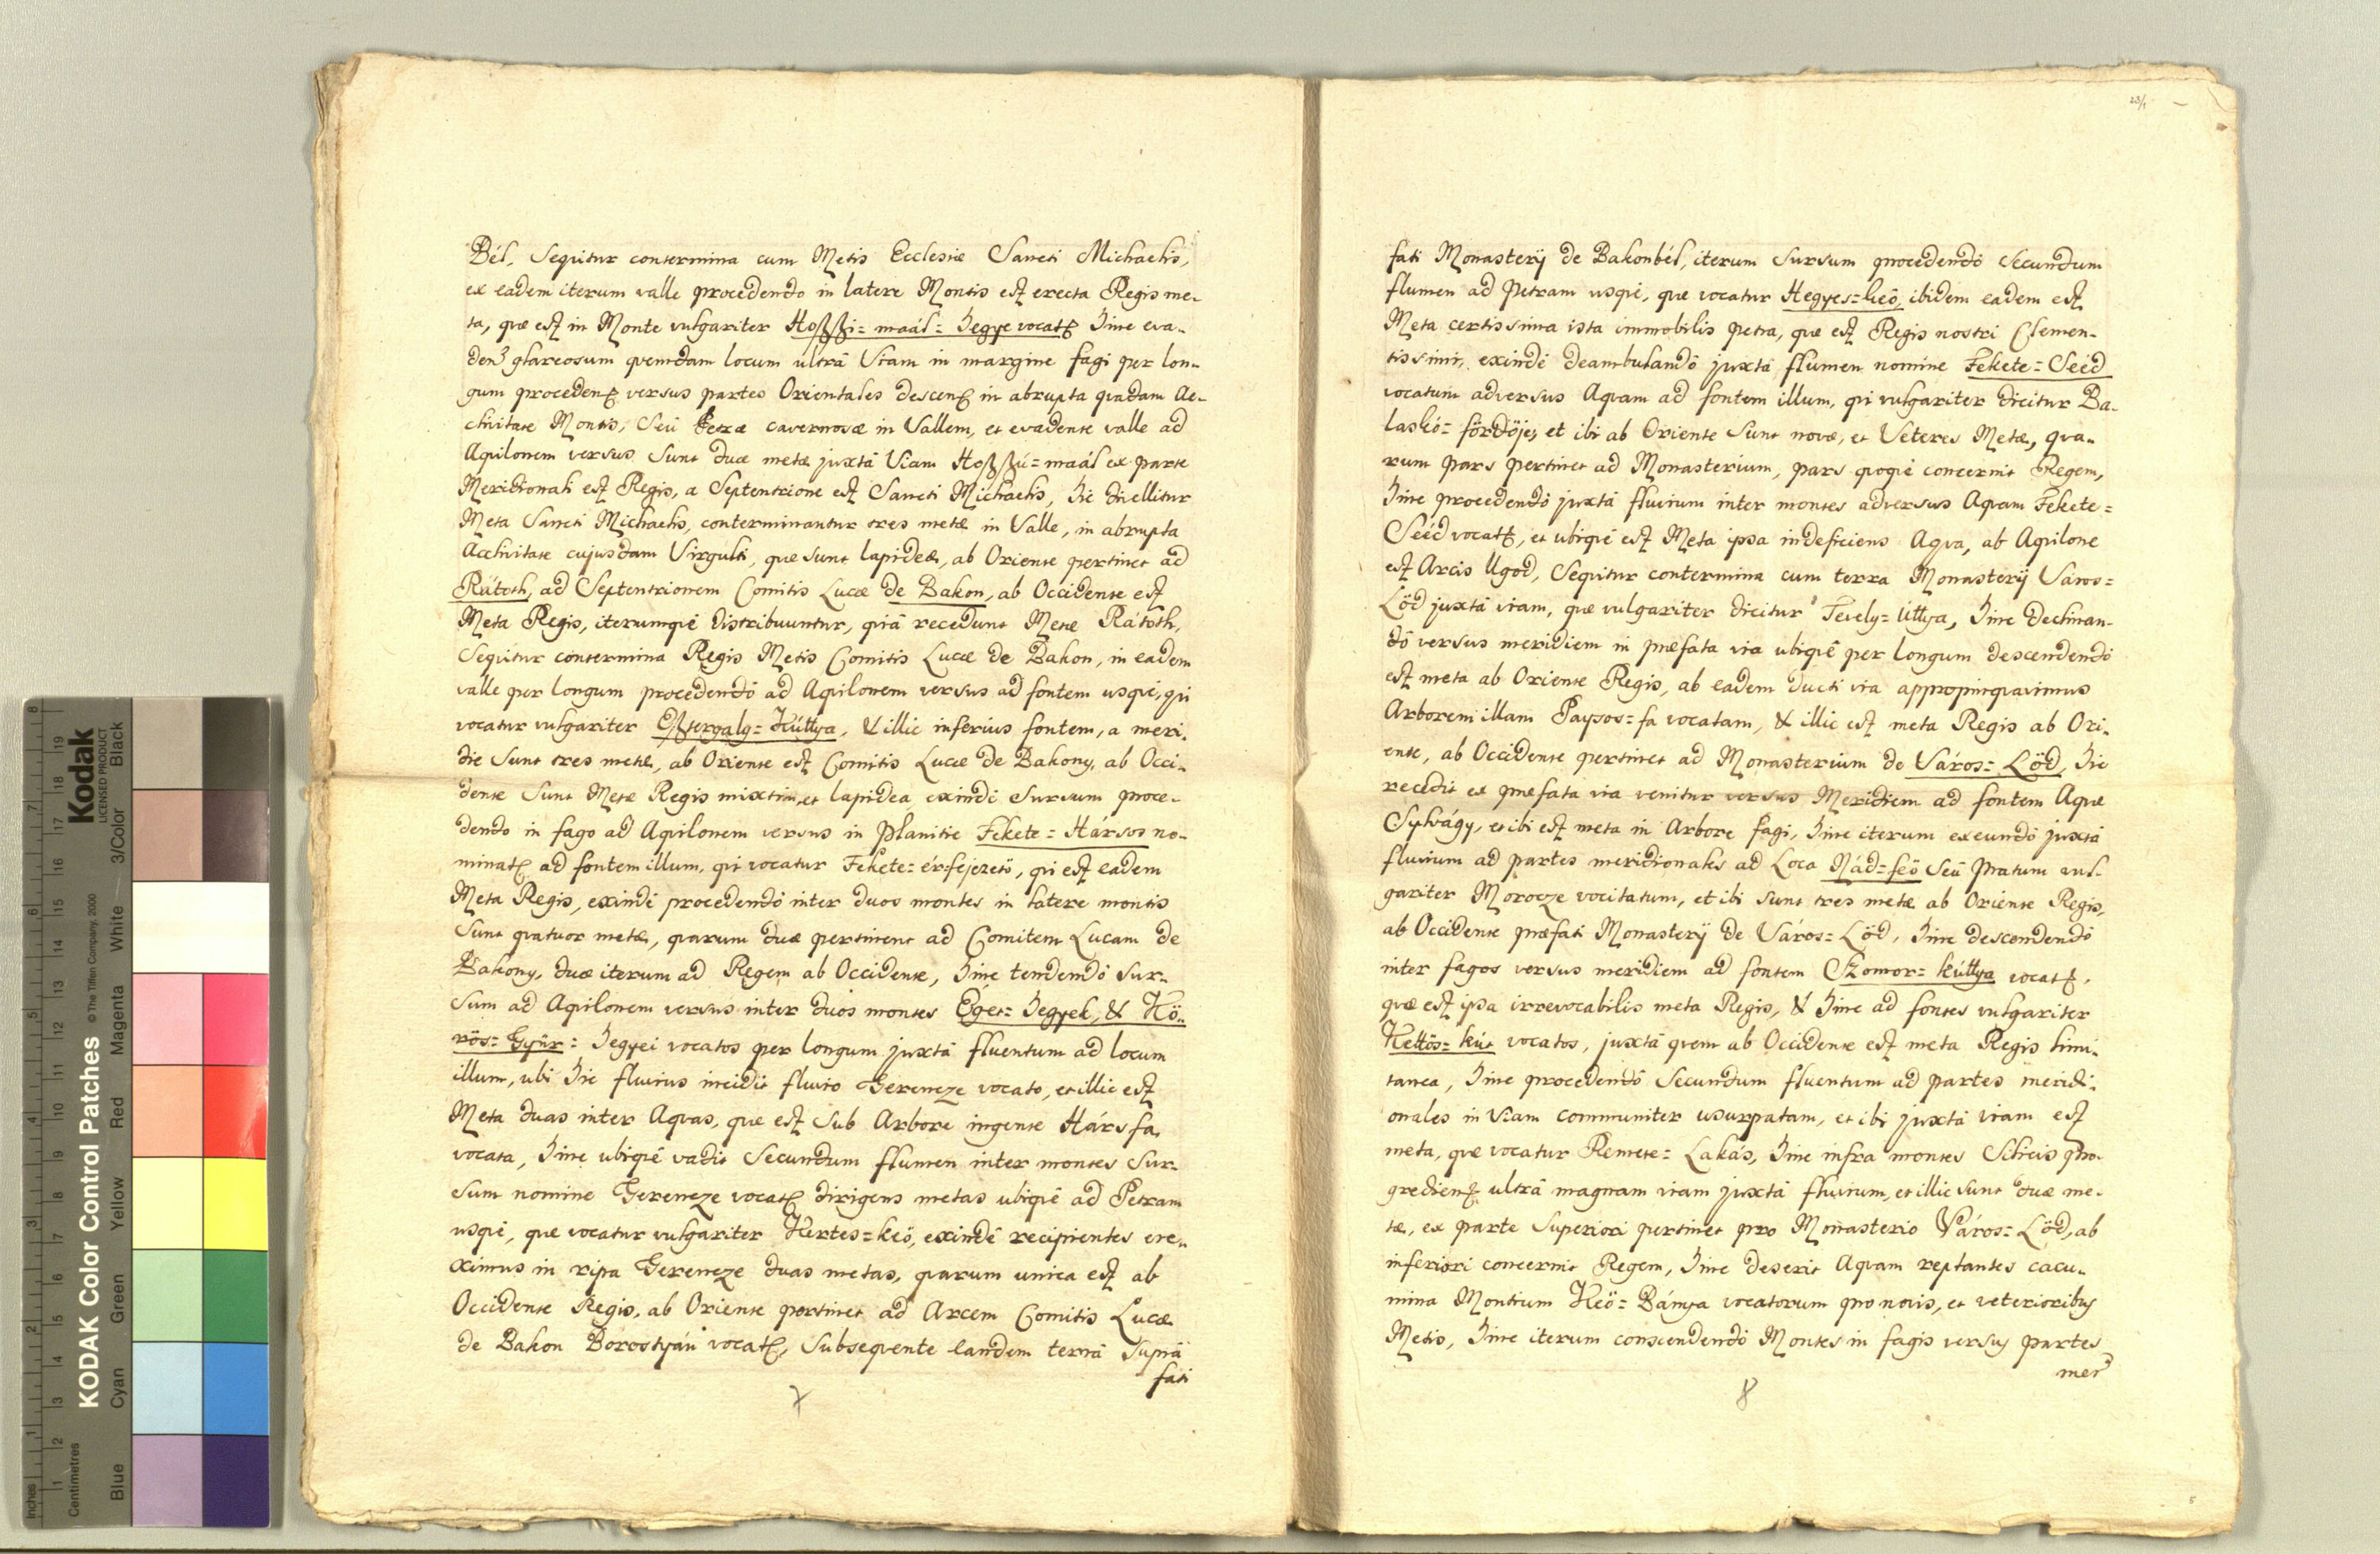 Bél, Sequitur contermina cum Metis Ecclesiæ Sancti Michaelis,
ex eadem iterum valle procedendo in latere Montis est erecta Regis me-
ta, quæ est in Monte vulgariter Hoßßi=maál=hegye vocat hinc eva-
den glareosum quemdam locum ultrâ Viam in margine fagi per lon-
gum proceden versus partes Orientales descen in abrupta quadam Ac-
clivitate Montis, Seu Petræ cavernosæ in Vallem, et evadente valle ad
Aquilonem versus Sunt duæ metæ juxtâ Viam Hoßßú=maál ex parte
Meridionali est Regis, a Septentrione est Sancti Michaelis, hic divellitur
Meta Sancti Michaelis, conterminantur tres metæ in Valle, in abrupta
Acclivitate cujusdam Virgulti, quæ sunt lapideæ, ab Oriente pertinet ad
Rátoth, ad Septentrionem Comitis Lucæ de Bakon, ab Occidente est
Meta Regis, iterumqué distribuuntur, quiâ recedunt Metæ Rátoth,
Sequitur contermina Regis Metis Comitis Lucæ de Bakon, in eadem
valle per longum procedendô ad Aquilonem versus ad fontem usqué, qui
vocatur vulgariter Eßtergaly=Kúttya, & illic inferius fontem, a meri-
die Sunt tres metæ, ab Oriente est Comitis Lucæ de Bakony, ab Occi-
dente Sunt Metæ Regis mixtim, et lapidea exindé Sursum proce-
dendo in fago ad Aquilonem versus in planitie Fekete=Hársos no-
minat ad fontem illum, qui vocatur Fekete=ér-fejezetö, qui est eadem
Meta Regis, exindé procedendô inter duos montes in latere montis
Sunt quatuor metæ, quarum duæ pertinent ad Comitem Lucam de
Bakony, duæ iterum ad Regem ab Occidente, hinc tendendô Sur-
sum ad Aquilonem versus inter duos montes Eger=hegyek, & Kö-
rös=Gyür=hegyei vocatos per longum juxtâ fluentum ad locum
illum, ubi hic fluvius incidit fluvio Gerencze vocato, et illic est
Meta duas inter Aquas, quæ est Sub Arbore ingente Hársfa
vocata, hinc ubiqué vadit Secundum flumen inter montes Sur-
sum nomine Gerencze vocat dirigens metas ubiqué ad Petram
usqué, quæ vocatur vulgariter Kertes=keö, exindé recipientes ere-
ximus in ripa Gerencze duas metas, quarum unica est ab
Occidente Regis, ab Oriente pertinet ad Arcem Comitis Lucæ
de Bakon Borostyán vocat, Subsequente eandem terrâ Suprâ
fati
7
fati Monasterÿ de Bakonbél, iterum Sursum procedendô Secundum
flumen ad Petram usqué, quæ vocatur Hegyes=keö, ibidem eadem est
Meta certissima ista immobilis petra, quæ est Regis nostri Clemen-
tissimi, exindé deambulandô juxtâ flumen nomine Fekete=Séed
vocatum adversus Aquam ad fontem illum, qui vulgariter dicitur Ba-
laskó=fördöje, et ibi ab Oriente Sunt novæ, et Veteres Metæ, qua-
rum pars pertinet ad Monasterium, pars quoqué concernit Regem,
hinc procedendô juxtâ fluvium inter montes adversus Aquam Fekete=
Séed vocat, et ubiqué est Meta ipsa indeficiens Aqua, ab Aquilone
est Arcis Ugod, Sequitur contermina cum terra Monasterÿ Város=
Löd juxtâ viam, quæ vulgariter dicitur Tevely=úttya, hinc declinan-
dô versus meridiem in præfata via ubiqué per longum descendendô
est meta ab Oriente Regis, ab eadem ducti via appropinquavimus
Arborem illam Paysos=fa vocatam, & illic est meta Regis ab Ori-
ente, ab Occidente pertinet ad Monasterium de Város=Löd, hic
recedit ex præfata via venitur versus Meridiem ad fontem Aquæ
Sylvágy, et ibi est meta in Arbore fagi, hinc iterum exeundô juxtâ
fluvium ad partes meridionales ad Loca Nád=feö Seû Pratum vul-
gariter Morocze vocitatum, et ibi sunt tres metæ ab Oriente Regis,
ab Occidente præfati Monasterÿ de Város=Löd, hinc descendendô
inter fagos versus meridiem ad fontem Szomor=kúttya vocat,
quæ est ipsa irrevocabilis meta Regis, & hinc ad fontes vulgariter
Kettös=kút vocatos, juxtâ quem ab Occidente est meta Regis limi-
tanea, hinc procedendô Secundum fluentum ad partes meridi-
onales in Viam communiter usurpatam, et ibi juxtâ viam est
meta, quæ vocatur Remete=Lakás, hinc infra montes Silicis pro-
gredien ultrâ magnam viam juxtâ fluvium, et illic sunt duæ me-
tæ, ex parte Superiori pertinet pro Monasterio Város=Löd, ab
inferiori concernit Regem, hinc deserit Aquam reptantes cacu-
mina Montium Keö=Bánya vocatorum pro novis, et veterioribus
Metis, hinc iterum conscendendô Montes in fagis versus partes
mer
8
23/1
KODAK Color Control Patches
© The Tiffen Company, 2000
Kodak
LICENSED PRODUCT
Inches
Centimetres
Blue
Cyan
Green
Yellow
Red
Magenta
White
3/Color
Black